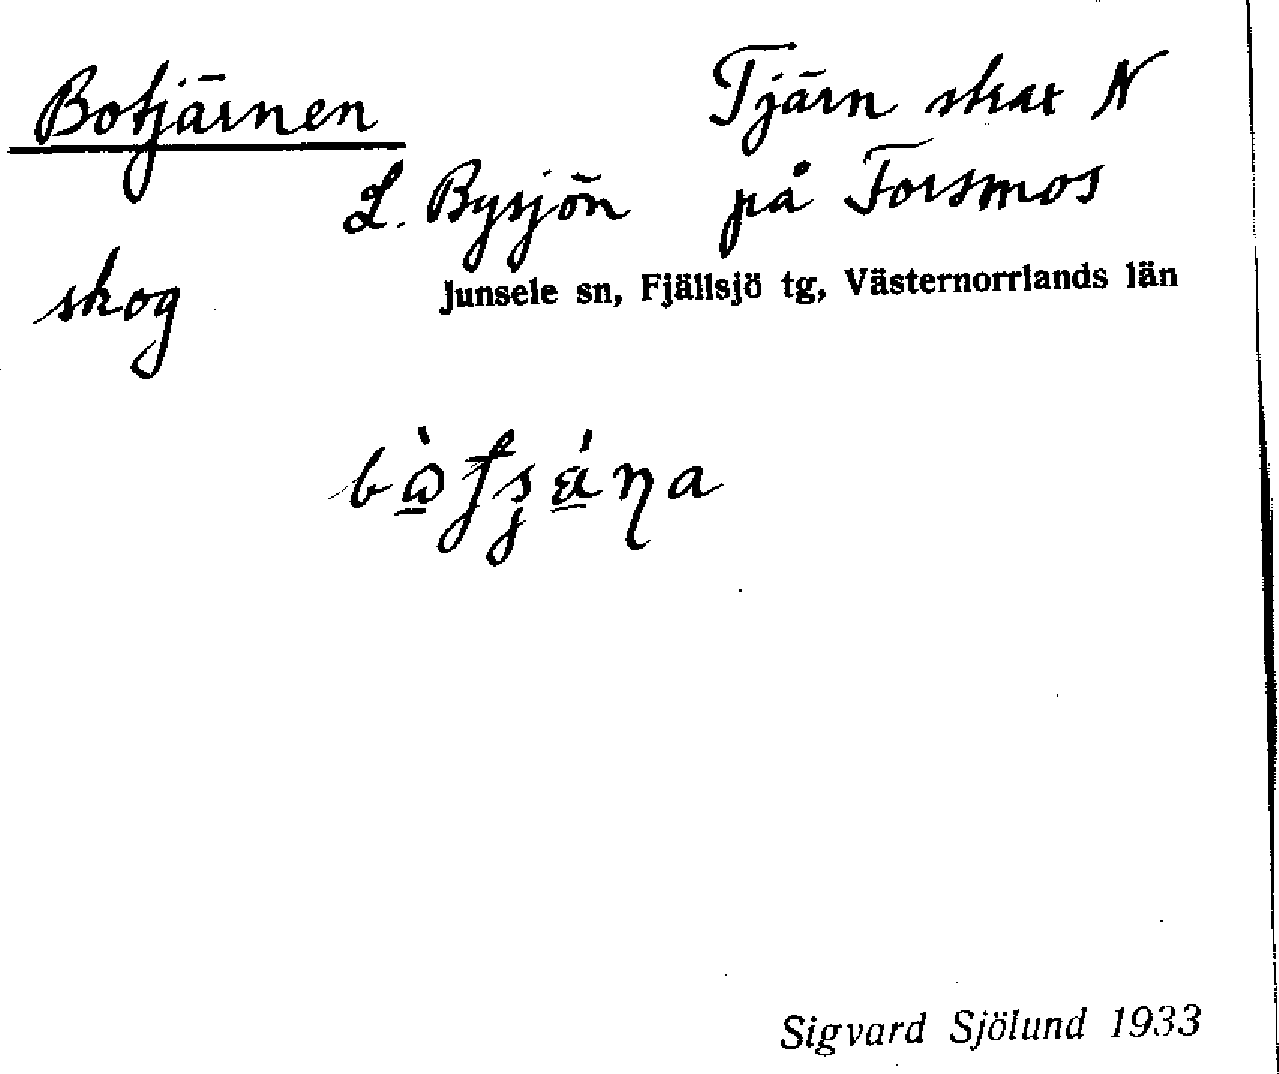 Botjärnen
Tjärn skat N
L. Bysjön på Forsmos
skog
Junsele sn, Fjällsjö tg, Västernorrlands län
Sigvard Sjölund 1933